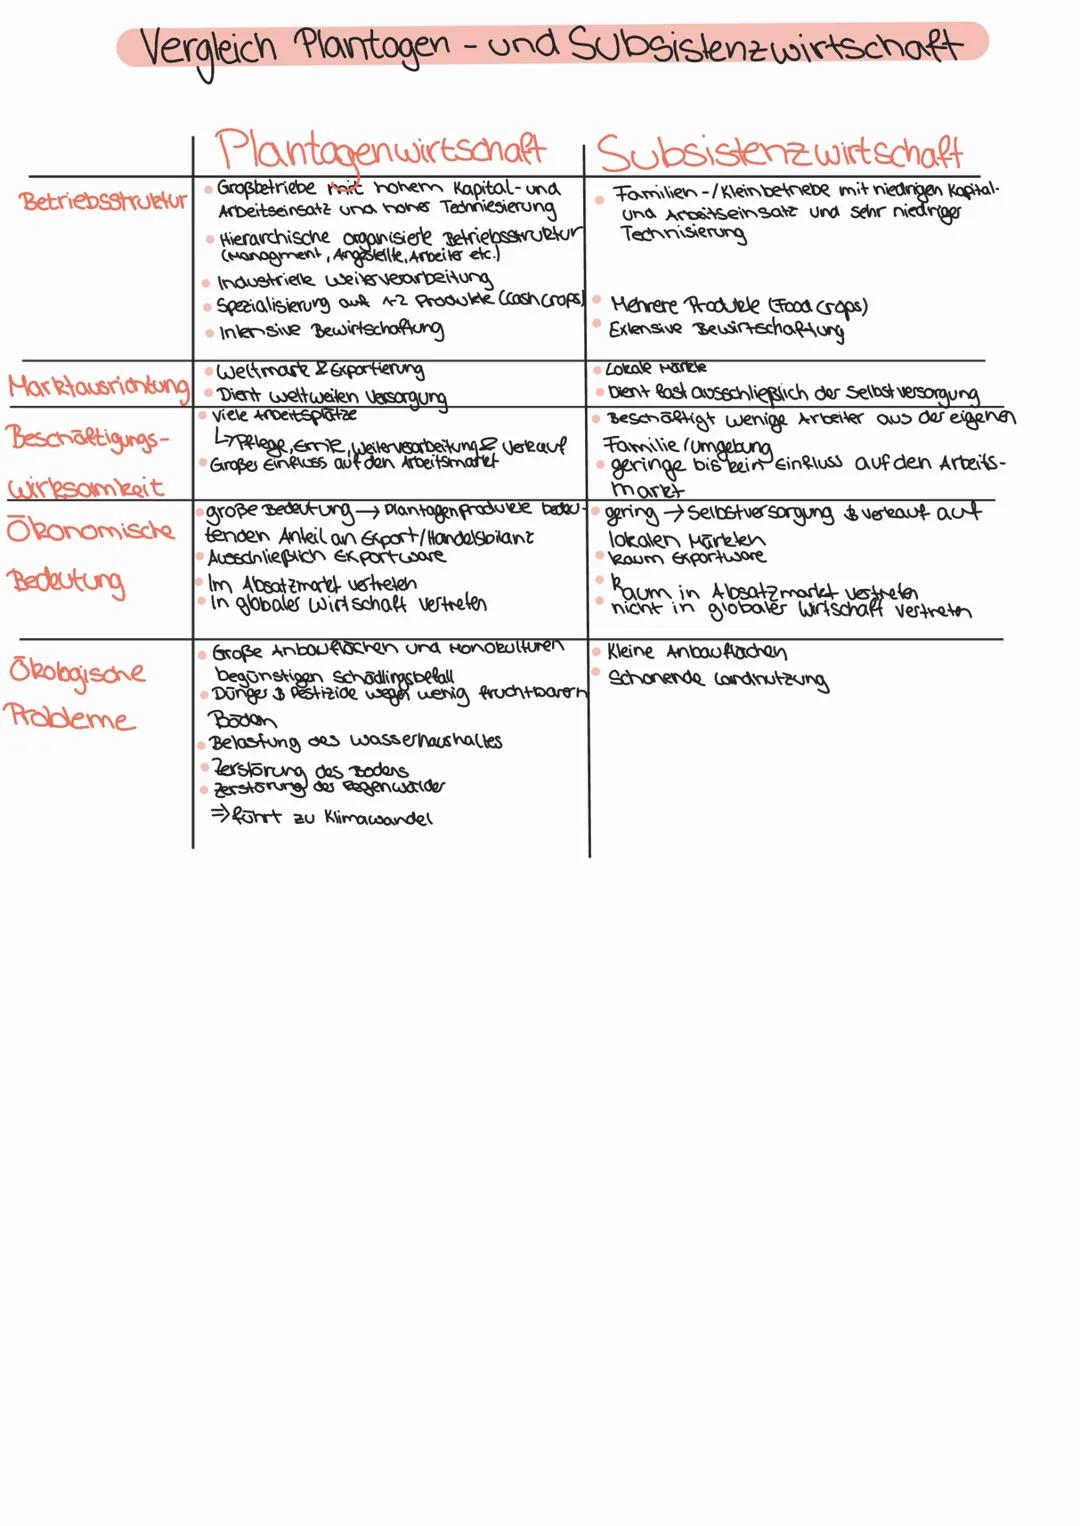 Vergleich Plantagen - und Subsistenzwirtschaft
Plantagenwirtschaft
Subsistenzwirtschaft
Betriebsstruktur
• Großbetriebe mit hohem Kapital- und
Arbeitseinsatz und hoher Techniesierung
• Hierarchische organisierte Betriebsstruktur
(Managment, Angestellte, Arbeiter etc.)
• Industrielle Weiterverarbeitung
• Spezialisierung auf 1-2 Produkte (Cash crops)
• Intensive Bewirtschaftung
• Familien-/Kleinbetriebe mit niedrigen Kapital-
und Arbeitseinsatz und sehr niedriger
Technisierung
• Mehrere Produkte (Food crops)
• Extensive Bewirtschaftung
Marktausrichtung
• Weltmarkt & Exportierung
• Dient weltweiten Versorgung
• Lokale Märkte
• Dient fast ausschließlich der Selbstversorgung
Beschäftigungs-
wirksamkeit
• Viele Arbeitsplätze
↳ Pflege, Ernte, Weiterverarbeitung & Verkauf
• Großer Einfluss auf den Arbeitsmarkt
• Beschäftigt wenige Arbeiter aus der eigenen
Familie/Umgebung
• geringe bis kein Einfluss auf den Arbeits-
markt
Ökonomische
Bedeutung
• große Bedeutung → Plantagenprodukte bedeu-
tenden Anteil an Export/Handelsbilanz
• Ausschließlich Exportware
• Im Absatzmarkt vertreten
• In globaler Wirtschaft vertreten
• gering → Selbstversorgung & Verkauf auf
lokalen Märkten
• kaum Exportware
• Kaum in Absatzmarkt vertreten
• nicht in globaler Wirtschaft vertreten
Ökologische
Probleme
• Große Anbauflächen und Monokulturen
begünstigen Schädlingsbefall
• Dünger & Pestizide wegen wenig fruchtbaren
Böden
• Belastung des Wasserhaushaltes
• Zerstörung des Bodens
• Zerstörung der Regenwälder
⇒ führt zu Klimawandel
• Kleine Anbauflächen
• Schonende Landnutzung